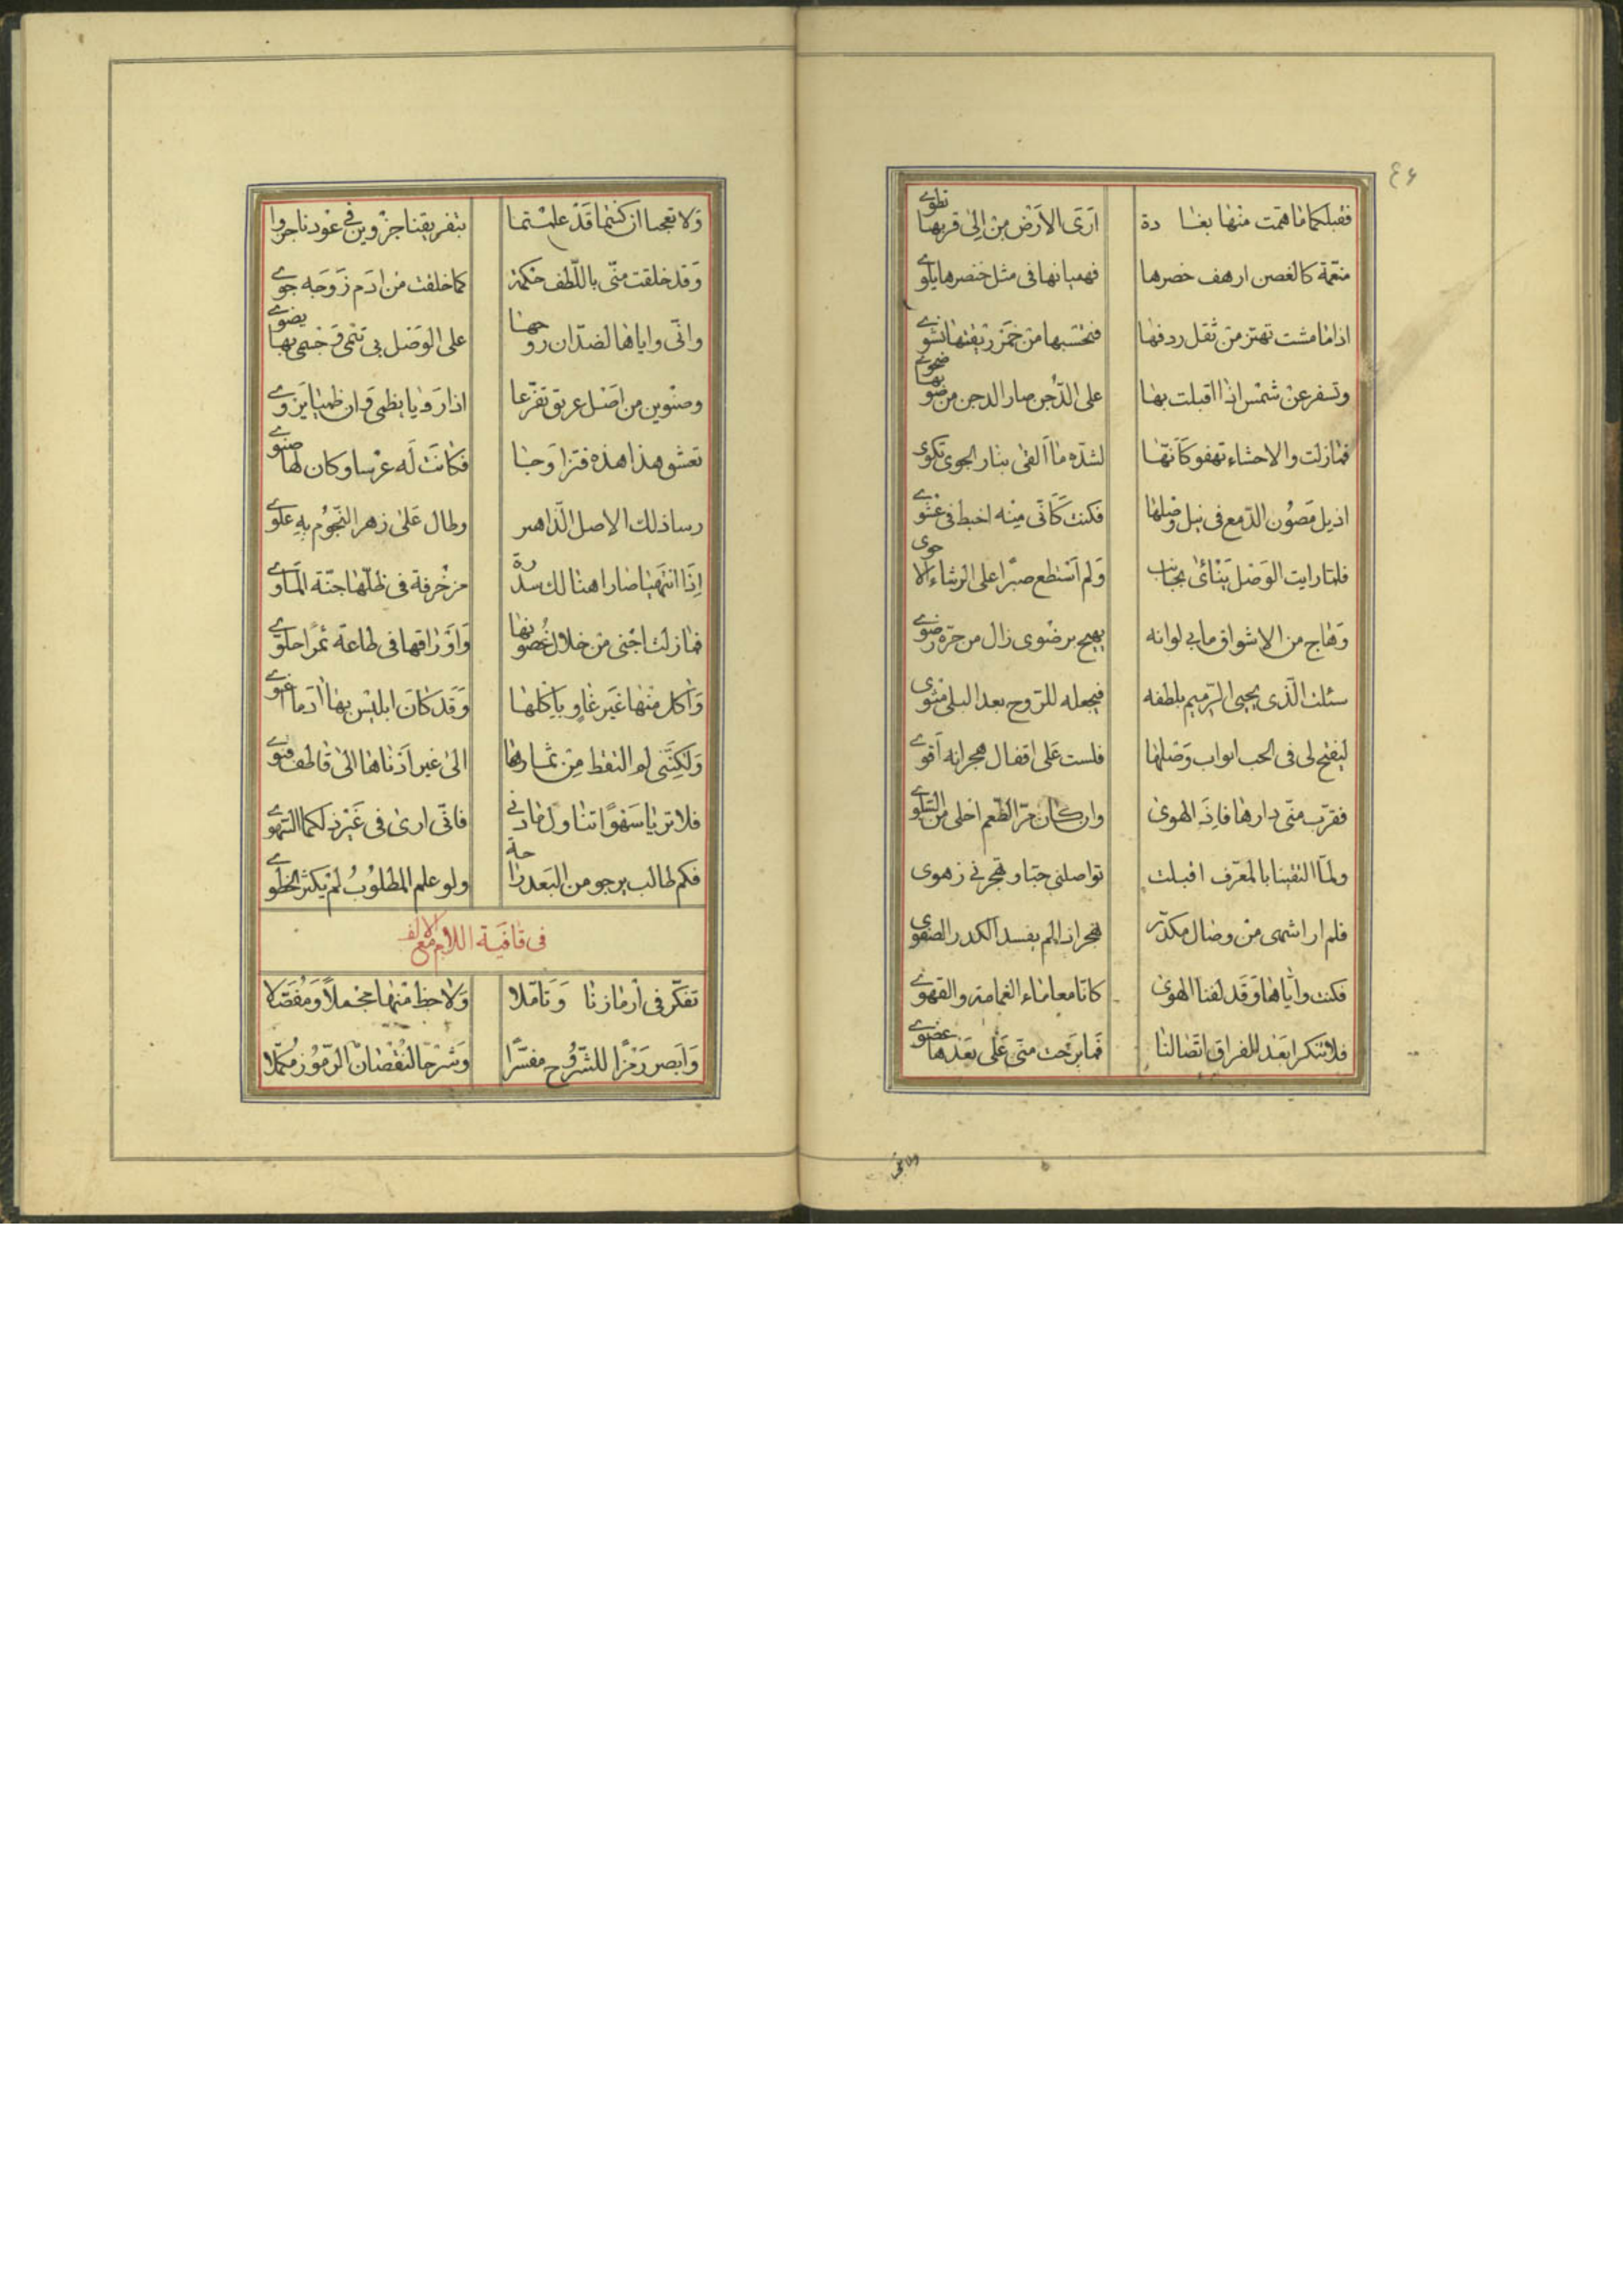 ٤۶
فقبلكما ما همت منها بغادة ارى الارض من الى قربها تطوى
منعّمة كالغصن ارهف خصرها فهميانها فى مثل خنصرها يلوى
اذا ما مشت تهتز من ثقل ردفها فتحسبها من خمر ريقتها نشوى
وتسفر عن شمس اذا اقبلت بها على الدّجن صار الدجن من ضوبها ضحوى
فما زلت والاحشاء تهفو كانّها لشدّه ما القى بنار الجوى تكوى
اذيل مصون الدّمع فى نيل وصلها فكنت كانّى منه اخبط فى عشوى
فلمّا رايت الوصل ينائ بجانب ولم استطع صبرًا على الرشاء الاحوى
وهاج من الاشواق مابى لوانه يهيج برضوى زال من حرّه رضوى
سئلت الّذى يحيى الرّميم بلطفه فيجعله للرّوح بعد البلى مثوى
ليفتح لى فى الحب ابواب وصلها فلست على اقفال هجرانه اقوى
فقرّب منّى دارها فاذ الهوى وان كان مرّ الطّعم احلى من السّلوى
ولمّا التقينا بالمعرّف اقبلت تواصلنى حبّا وهجرنى زهوى
فلم ار اشهى من وصال مكدّر لهجران لم يفسد الكدر الصفوى
فكنت وايّاها وقد لفنا الهوى كانا معا ماء الغمامة والقهوى
فلا تنكرا بعد الفراق اتّصالنا فما برحت منّى على بعدها عضوى
ولا تعجبا ان كنتما قد علمتما بتفريقنا جزوين فى عودنا جزوا
وقد خلقت منّى باللّطف حكمة كما خلقت من ادم زوجه حوى
وانّى واياها لضدّان روحها على الوصل بى تنمى وجسمى بها يضوى
وصنوين من اصل عريق تفرّعا اذا رويا يظمى وان ظميا يروى
تعشق هذا هذه فتزاوجا فكانت له عرسا وكان لها صنوى
رسا ذلك الاصل الّذاهر وطال على زهر النّجوم به علوى
اذا انتهيا صارا هنالك سدرة مزخرفة فى ظلّها جنّة الماوى
فما زلت اجنى من خلال غصونها واوراقها فى طاعة ثمرًا حلوى
واكل منها غير غاو باكلها وقد كان ابليس بها ادما اغوى
ولكنّنى لم التقط من ثمارها الى غير ادناها الى قاطف قنوى
فلا تريا سهوًا تناول ما دنى فانّى ارى فى غير ذلكما السّهوى
فكم طالب يرجو من البعد راحة ولو علم المطلوب لم يكثر الخطوى
فى قافية اللام مع الالف
تفكّر فى ارمازنا وتامّلا ولاحظ منها مجملاً ومفصّلا
وابصر رمزًا للشّروح مفسّرًا وشرحًا لنقصان الرّموز مكمّلا
ولا تعجبا